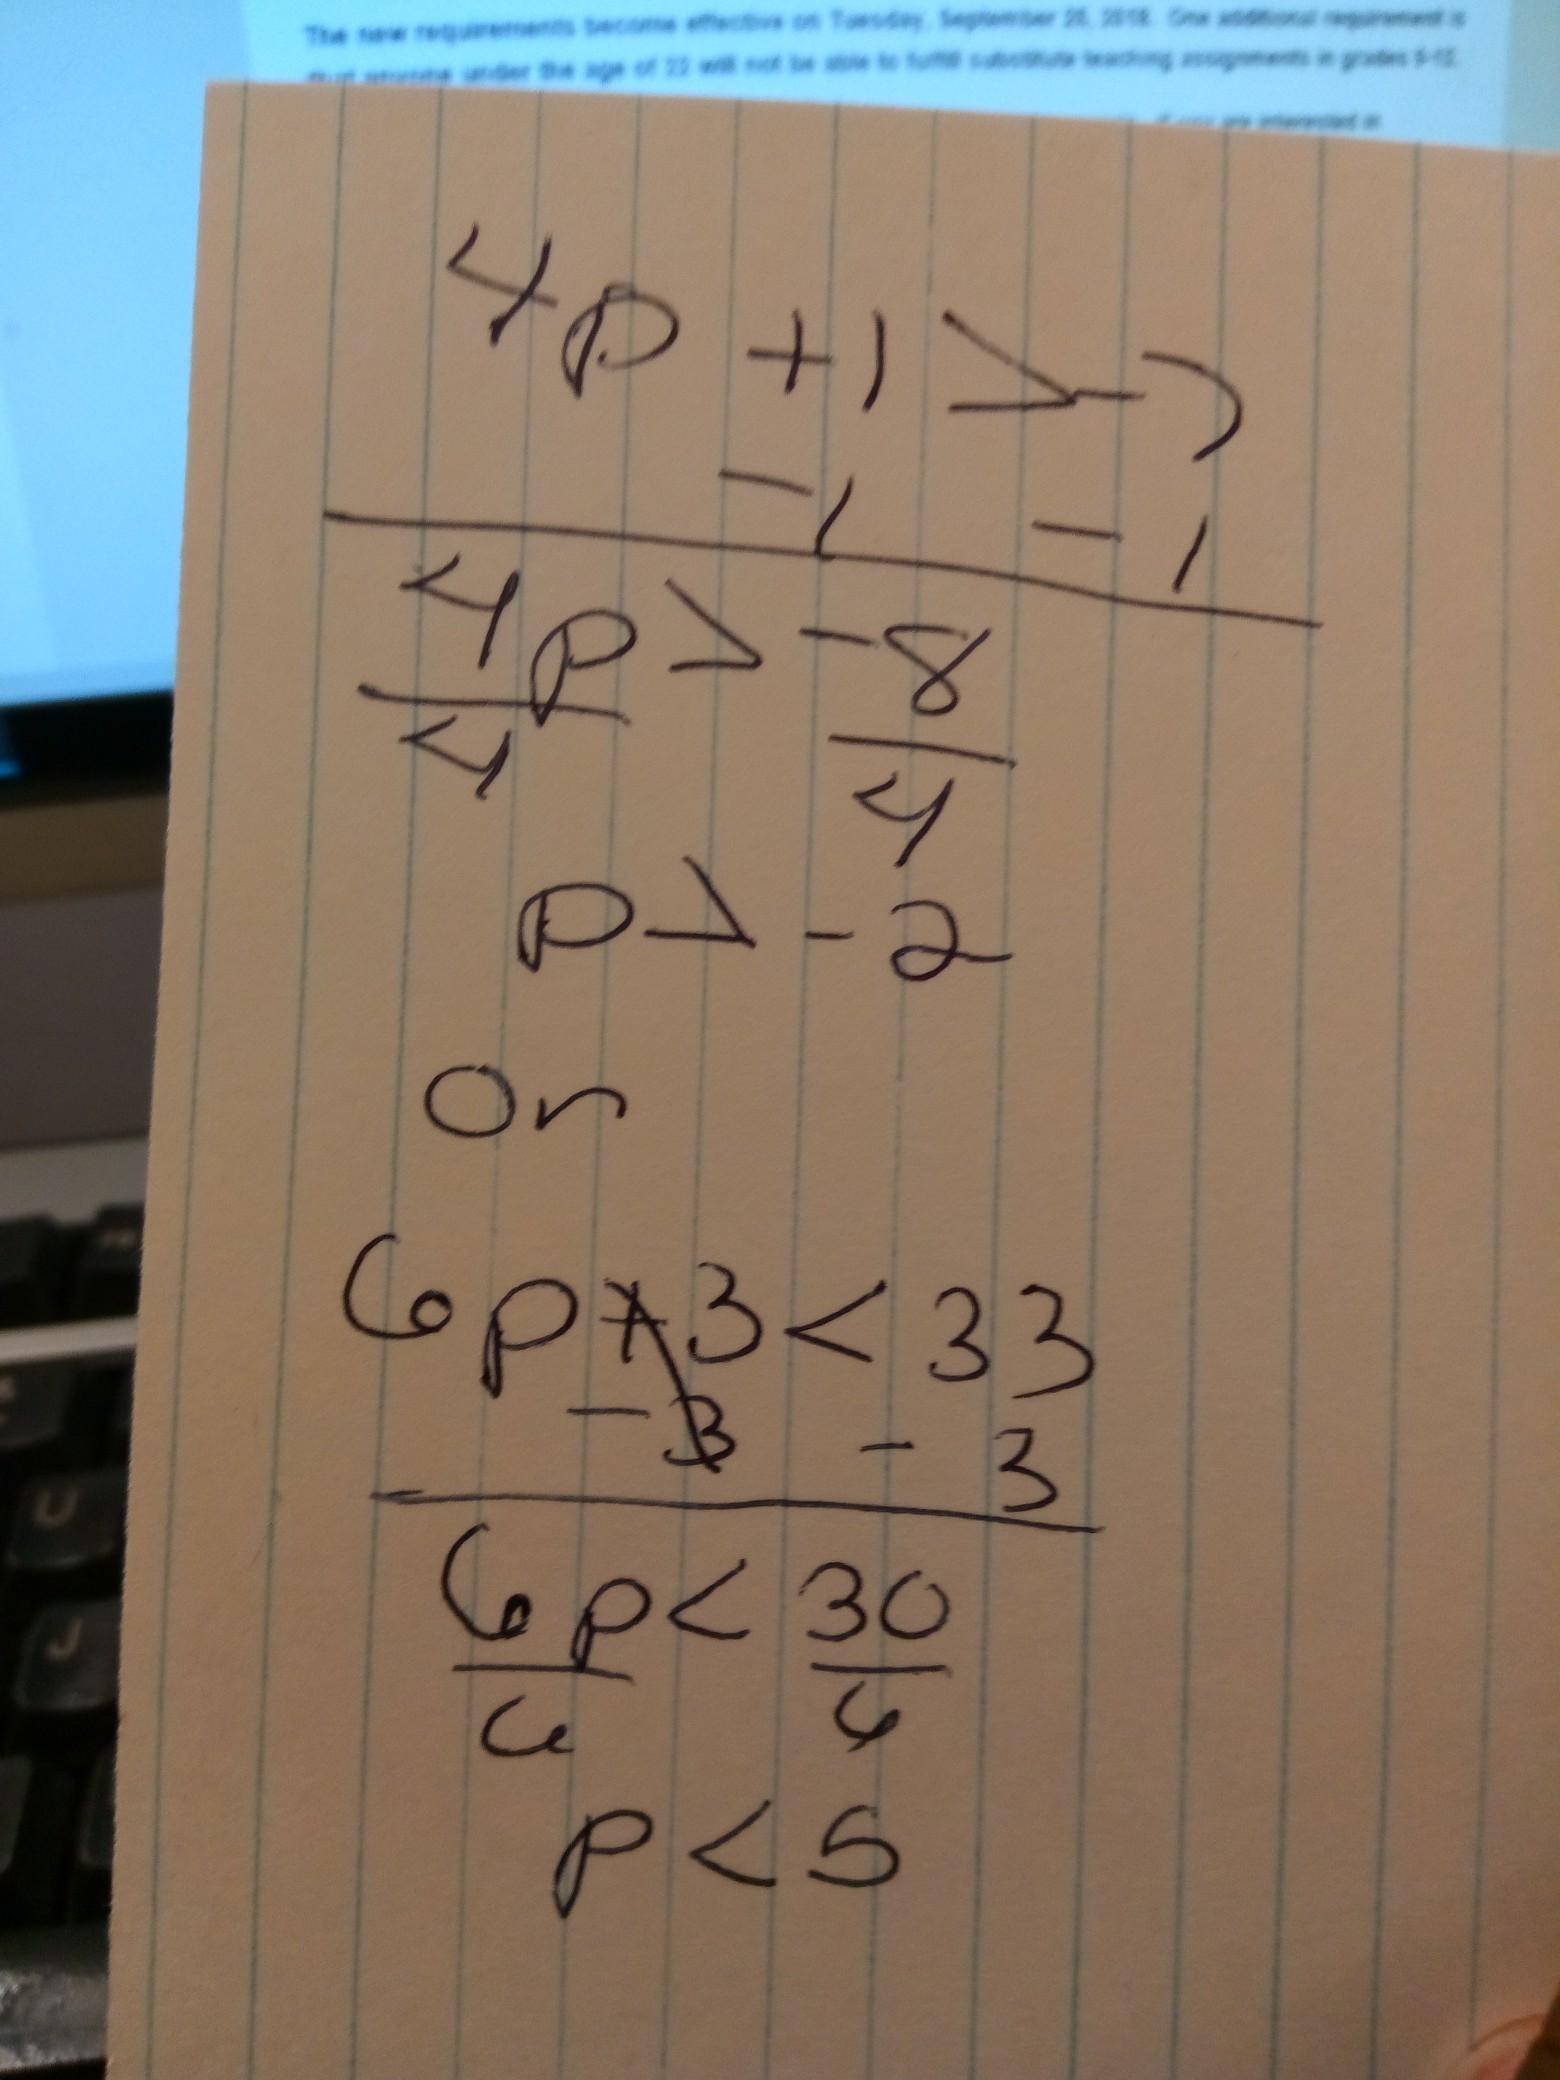 The new requirements become effective on Tuesday, September 25, 2018. One additional requirement is
that anyone under the age of 22 will not be able to fulfill substitute teaching assignments in grades 9-12.
if you are interested in
4p +1 > -7
-1 -1
4p > -8
4 4
p > -2
Or
6p + 3 < 33
-3 - 3
6p < 30
6 6
p < 5
U
J